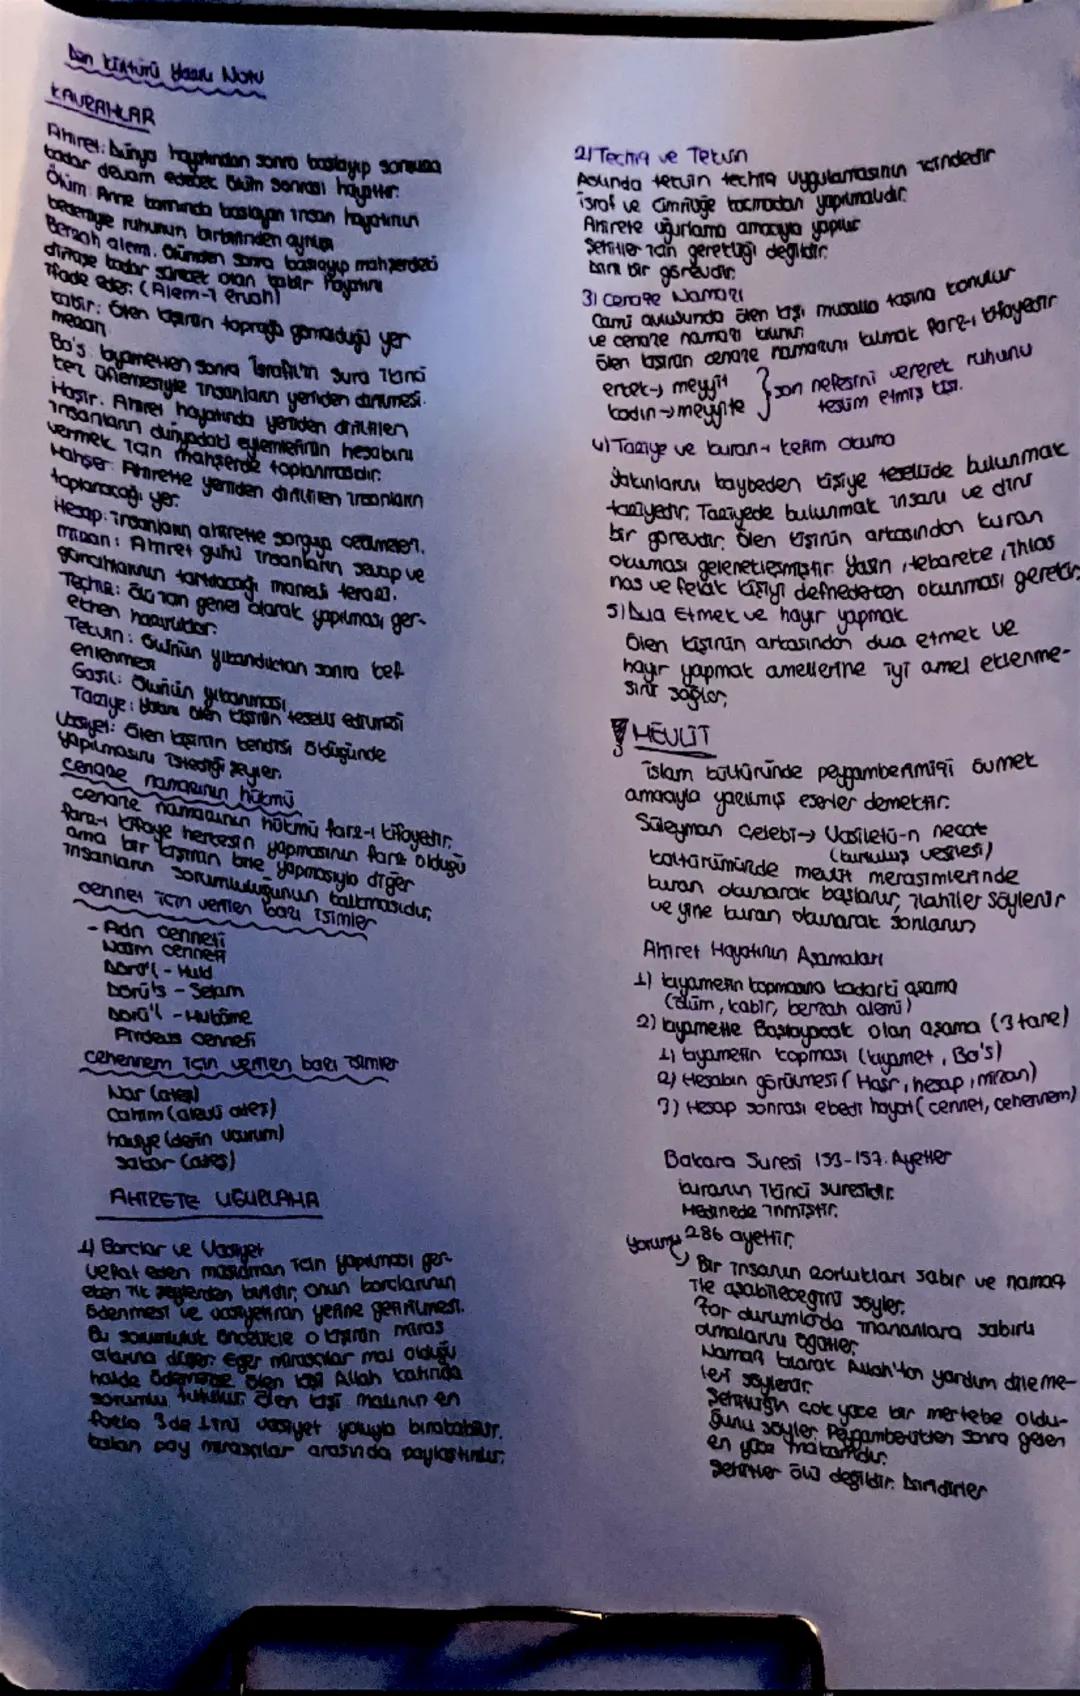 Din Kültürü Yazılı Notu
KAVRAMLAR
Ahiret: Dünya hayatından sonra başlayıp sonsuza
kadar devam edecek ölüm sonrası hayattır.
Ölüm: Anne karnında başlayan insan hayatının
bedeniyle ruhunun birbirinden ayrılışı
Berzah alemi: Ölümden sonra başlayıp mahşerdeki
dirilişe kadar sürecek olan kabir hayatını
ifade eder. (Alem-i ervah)
Kabir: Ölen kişinin toprağa gömüldüğü yer
mezar.
Ba's: kıyametten sonra İsrafil'in Sura ikinci
kez üflemesiyle insanların yeniden dirilmesi.
Haşir: Ahiret hayatında yeniden diriltilen
insanların dünyadaki eylemlerinin hesabını
vermek için mahşerde toplanmasıdır.
Mahşer: Ahirette yeniden diriltilen insanların
toplanacağı yer.
Hesap: insanların ahirette sorguya çekilmeleri.
Mizan: Ahiret günü insanların sevap ve
günahlarının tartılacağı manevi terazi.
Techiz: ölü için genel olarak yapılması ger-
eken hazırlıklar.
Tekvin: Ölünün yıkandıktan sonra kef-
enlenmesi
Gasil: Ölünün yıkanması
Taziye: Yakını ölen kişinin teselli edilmesi
Vasiyet: Ölen kişinin kendisi öldüğünde
yapılmasını istediği şeyler.
Cenaze namazının hükmü
Cenaze namazının hükmü farz-ı kifayedir.
farz-ı kifaye herkesin yapmasının farz olduğu
ama bir kişinin bile yapmasıyla diğer
insanların sorumluluğunun kalkmasıdır.
Cennet için verilen bazı isimler
- Adn cenneti
Naim cenneti
Dârü'l - Huld
Darü's - Selam
Darü'l - Mukâme
Firdevs cenneti
Cehennem için verilen bazı isimler
Nar (ateş)
Cahim (alevli ateş)
haviye (derin uçurum)
sakar (ateş)
AHİRETE UĞURLAMA
1) Borçlar ve Vasiyet
Vefat eden müslüman için yapılması ger-
eken ilk şeylerden biridir, onun borçlarının
ödenmesi ve vasiyetinin yerine getirilmesi.
Bu sorumluluk öncelikle o kişinin miras
çılarına düşer. Eğer mirasçılar mal olduğu
halde ödemezse ölen kişi Allah katında
sorumlu tutulur. Ölen kişi malının en
fazla 3 de 1 ini vasiyet yoluyla bırakabilir.
kalan pay mirasçılar arasında paylaştırılır.
2) Techiz ve Tekvin
Aslında tekvin techiz uygulamasının içindedir
İsraf ve cimriliğe kaçmadan yapılmalıdır.
Ahirete uğurlama amacıyla yapılır
Şehitler için gerekliliği değildir.
Dini bir görevdir.
3) Cenaze Namazı
Cami avlusunda ölen kişi musalla taşına konulur
ve cenaze namazı kılınır.
Ölen kişinin cenaze namazını kılmak farz-ı kifayedir
erkek → meyyit } son nefesini vererek ruhunu
kadın → meyyite } teslim etmiş kişi.
4) Taziye ve kuran-ı kerim okuma
Yakınlarını kaybeden kişiye tesellide bulunmak
taziyedir. Taziyede bulunmak insani ve dini
bir görevdir. Ölen kişinin arkasından kuran
okuması gelenekleşmiştir. Yasin, tebareke, ihlas
nas ve felak kişiyi defnederken okunması gerekir.
5) Dua Etmek ve hayır yapmak
Ölen kişinin arkasından dua etmek ve
hayır yapmak amellerine iyi amel eklenme-
sini sağlar.
MEVLİT
İslam kültüründe peygamberimizi övmek
amacıyla yazılmış eserler demektir.
Süleyman Çelebi → Vesiletü-n necat
(kurtuluş vesilesi)
kültürümüzde mevlit merasimlerinde
kuran okunarak başlanır, ilahiler söylenir
ve yine kuran okunarak sonlanır.
Ahiret Hayatının Aşamaları
1) kıyametin kopmasına kadarki aşama
(ölüm, kabir, berzah alemi)
2) kıyametle Başlayacak olan aşama (3 tane)
1) kıyametin kopması (kıyamet, Ba's)
2) Hesabın görülmesi (Haşr, hesap, mizan)
3) Hesap sonrası ebedi hayat (cennet, cehennem)
Bakara Suresi 153-157. Ayetler
kuranın ikinci suresidir.
Medinede inmiştir.
286 ayettir.
Yorumu
Bir insanın zorlukları sabır ve namaz
ile aşabileceğini söyler.
Zor durumlarda inananlara sabırlı
olmalarını öğütler.
Namaz kılarak Allah'tan yardım dileme-
leri söylenir.
Şehitliğin çok yüce bir mertebe oldu-
ğunu söyler. Peygamberlikten sonra gelen
en yüce makamdır.
Şehitler ölü değildir. Diridirler